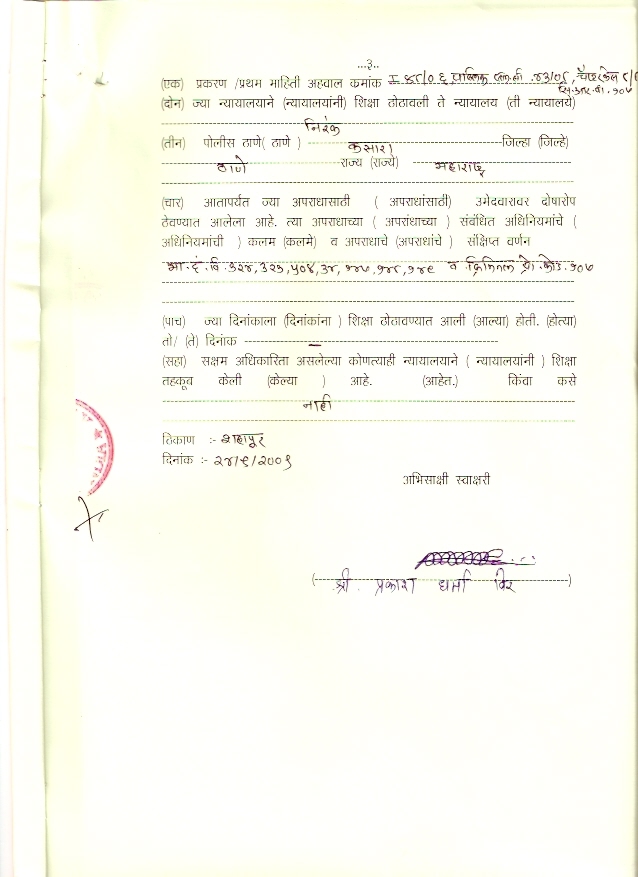 ...३..
(एक) प्रकरण /प्रथम माहिती अहवाल कमांक I
(दोन) ज्या न्यायालयाने (न्यायालयांनी) शिक्षा ठोठावली ते न्यायालय (ती न्यायालये)
निरंक
(तीन) पोलीस ठाणे( ठाणे ) कसारा जिल्हा (जिल्हे)
ठाणे राज्य (राज्ये) महाराष्ट्र
(चार) आतापर्यत ज्या अपराधासाठी ( अपराधांसाठी) उमेदवारावर दोषारोप
ठेवण्यात आलेला आहे. त्या अपराधाच्या ( अपराधांच्या ) संबंधित अधिनियमांचे (
अधिनियमांची ) कलम (कलमे) व अपराधाचे (अपराधांचे ) संक्षिप्त वर्णन
भा.दं.वि.३२४,३२३,५०४,३४,१४७,१४८,१४९ व क्रिमिनल प्रो.कोड.१०७
(पाच) ज्या दिनांकाला (दिनांकांना ) शिक्षा ठोठावण्यात आली (आल्या) होती. (होत्या)
तो/ (ते) दिनांक
(सहा) सक्षम अधिकारिता असलेल्या कोणत्याही न्यायालयाने ( न्यायालयांनी ) शिक्षा
तहकूब केली (केल्या ) आहे. (आहेत.) किंवा कसे
नाही
ठिकाण :- शहापूर
दिनांक :- २४/९/२००९
अभिसाक्षी स्वाक्षरी
( श्री. प्रकाश धर्मा विर )